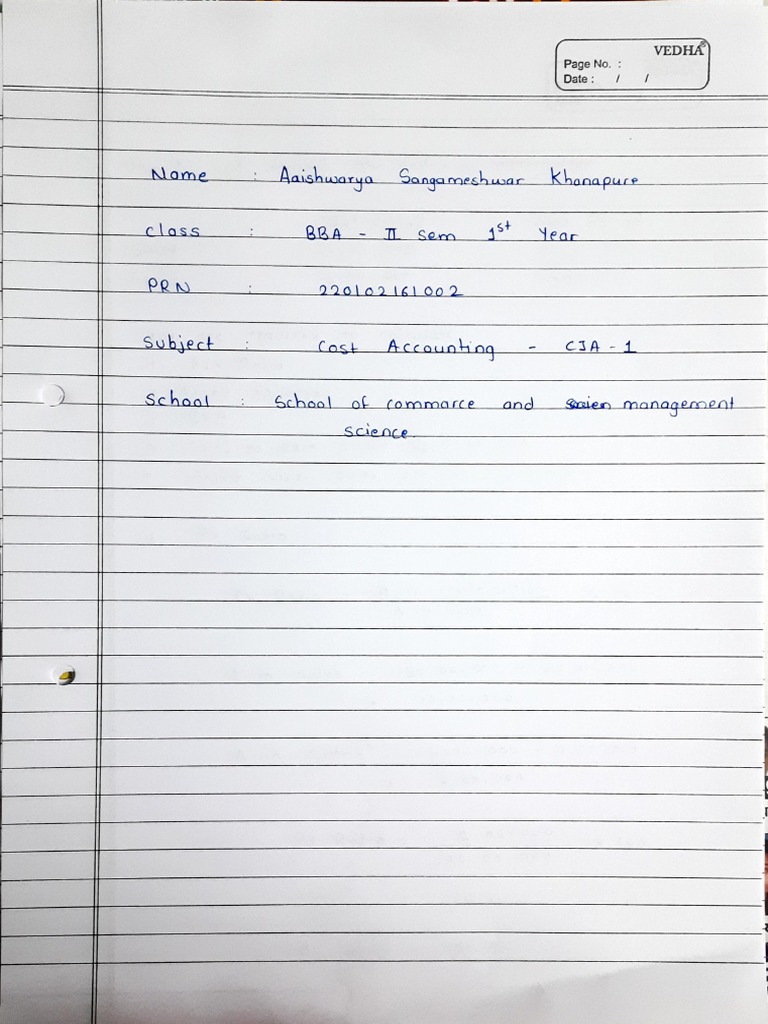 VEDHA®
Page No. :
Date : / /
Name : Aaishwarya Sangameshwar Khanapure
class : BBA - II sem 1st Year
PRN : 220102161002
Subject : Cost Accounting - CIA - 1
School : School of commarce and management
science